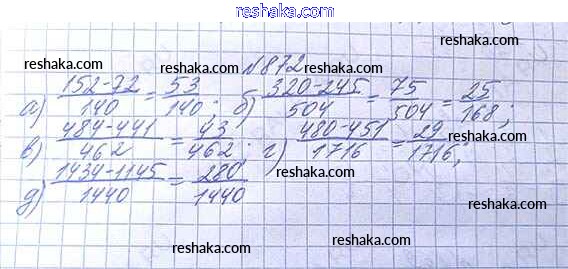 reshaka.com
№872
а) (152-72)/140 = 53/140; б) (320-245)/504 = 75/504 = 25/168;
в) (484-441)/462 = 43/462; г) (480-451)/1716 = 29/1716;
д) (1434-1145)/1440 = 280/1440
reshaka.com
reshaka.com
reshaka.com
reshaka.com
reshaka.com
reshaka.com
reshaka.com
reshaka.com
reshaka.com
reshaka.com
reshaka.com
reshaka.com